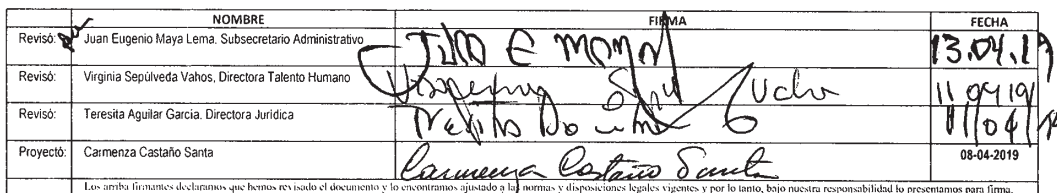 NOMBRE FIRMA FECHA
Revisó: Juan Eugenio Maya Lema. Subsecretario Administrativo 13.04.19
Revisó: Virginia Sepúlveda Vahos, Directora Talento Humano 11 04 19
Revisó: Teresita Aguilar García. Directora Jurídica 11/04/
Proyectó: Carmenza Castaño Santa Carmenza Castaño Santa 08-04-2019
Los arriba firmantes declaramos que hemos revisado el documento y lo encontramos ajustado a las normas y disposiciones legales vigentes y por lo tanto, bajo nuestra responsabilidad lo presentamos para firma.